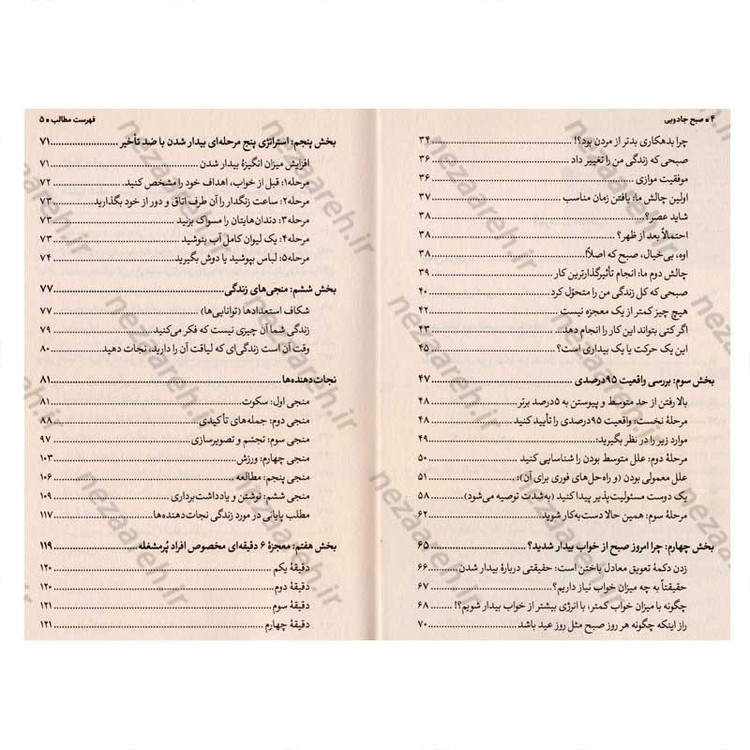 ۴ ■ صبح جادویی
چرا بدهکاری بدتر از مردن بود؟! ۳۴
صبحی که زندگی من را تغییر داد ۳۶
موفقیت موازی ۳۶
اولین چالش ما: یافتن زمان مناسب ۳۷
شاید عصر؟ ۳۸
احتمالاً بعد از ظهر؟ ۳۸
اوه، بی‌خیال، صبح که اصلاً! ۳۸
چالش دوم ما: انجام تأثیرگذارترین کار ۳۹
صبحی که کل زندگی من را متحوّل کرد ۴۰
هیچ چیز کمتر از یک معجزه نیست ۴۲
اگر کتی بتواند این کار را انجام دهد... ۴۳
این یک حرکت یا یک بیداری است؟ ۴۵
بخش سوم: بررسی واقعیت ۹۵درصدی ۴۷
بالا رفتن از حد متوسط و پیوستن به ۵درصد برتر ۴۸
مرحلهٔ نخست: واقعیت ۹۵درصدی را تأیید کنید ۴۸
موارد زیر را در نظر بگیرید: ۴۹
مرحلهٔ دوم: علل متوسط بودن را شناسایی کنید ۵۰
علل معمولی بودن (و راه‌حل‌های فوری برای آن): ۵۱
یک دوست مسئولیت‌پذیر پیدا کنید (به‌شدت توصیه می‌شود) ۵۸
مرحلهٔ سوم: همین حالا دست‌به‌کار شوید ۶۲
بخش چهارم: چرا امروز صبح از خواب بیدار شدید؟ ۶۵
زدن دکمهٔ تعویق معادل باختن است: حقیقتی دربارهٔ بیدار شدن ۶۶
حقیقتاً به چه میزان خواب نیاز داریم؟ ۶۷
چگونه با میزان خواب کمتر، با انرژی بیشتر از خواب بیدار شویم؟! ۶۸
راز اینکه چگونه هر روز صبح مثل روز عید باشد ۷۰
فهرست مطالب ■ ۵
بخش پنجم: استراتژی پنج مرحله‌ای بیدار شدن با ضد تأخیر ۷۱
افزایش میزان انگیزهٔ بیدار شدن ۷۱
مرحله۱: قبل از خواب، اهداف خود را مشخص کنید ۷۲
مرحله۲: ساعت زنگدار را آن طرف اتاق و دور از خود بگذارید ۷۳
مرحله۳: دندان‌هایتان را مسواک بزنید ۷۳
مرحله۴: یک لیوان کامل آب بنوشید ۷۳
مرحله۵: لباس بپوشید یا دوش بگیرید ۷۴
بخش ششم: منجی‌های زندگی ۷۷
شکاف استعدادها (توانایی‌ها) ۷۷
زندگی شما آن چیزی نیست که فکر می‌کنید ۷۹
وقت آن است زندگی‌ای که لیاقت آن را دارید، نجات دهید ۸۰
نجات‌دهنده‌ها ۸۱
منجی اول: سکوت ۸۱
منجی دوم: جمله‌های تأکیدی ۸۸
منجی سوم: تجسّم و تصویرسازی ۹۷
منجی چهارم: ورزش ۱۰۳
منجی پنجم: مطالعه ۱۰۶
منجی ششم: نوشتن و یادداشت‌برداری ۱۰۹
مطلب پایانی در مورد زندگی نجات‌دهنده‌ها ۱۱۷
بخش هفتم: معجزهٔ ۶ دقیقه‌ای مخصوص افراد پُرمشغله ۱۱۹
دقیقهٔ یکم ۱۲۰
دقیقهٔ دوم ۱۲۰
دقیقهٔ سوم ۱۲۱
دقیقهٔ چهارم ۱۲۱
nezaareh.ir